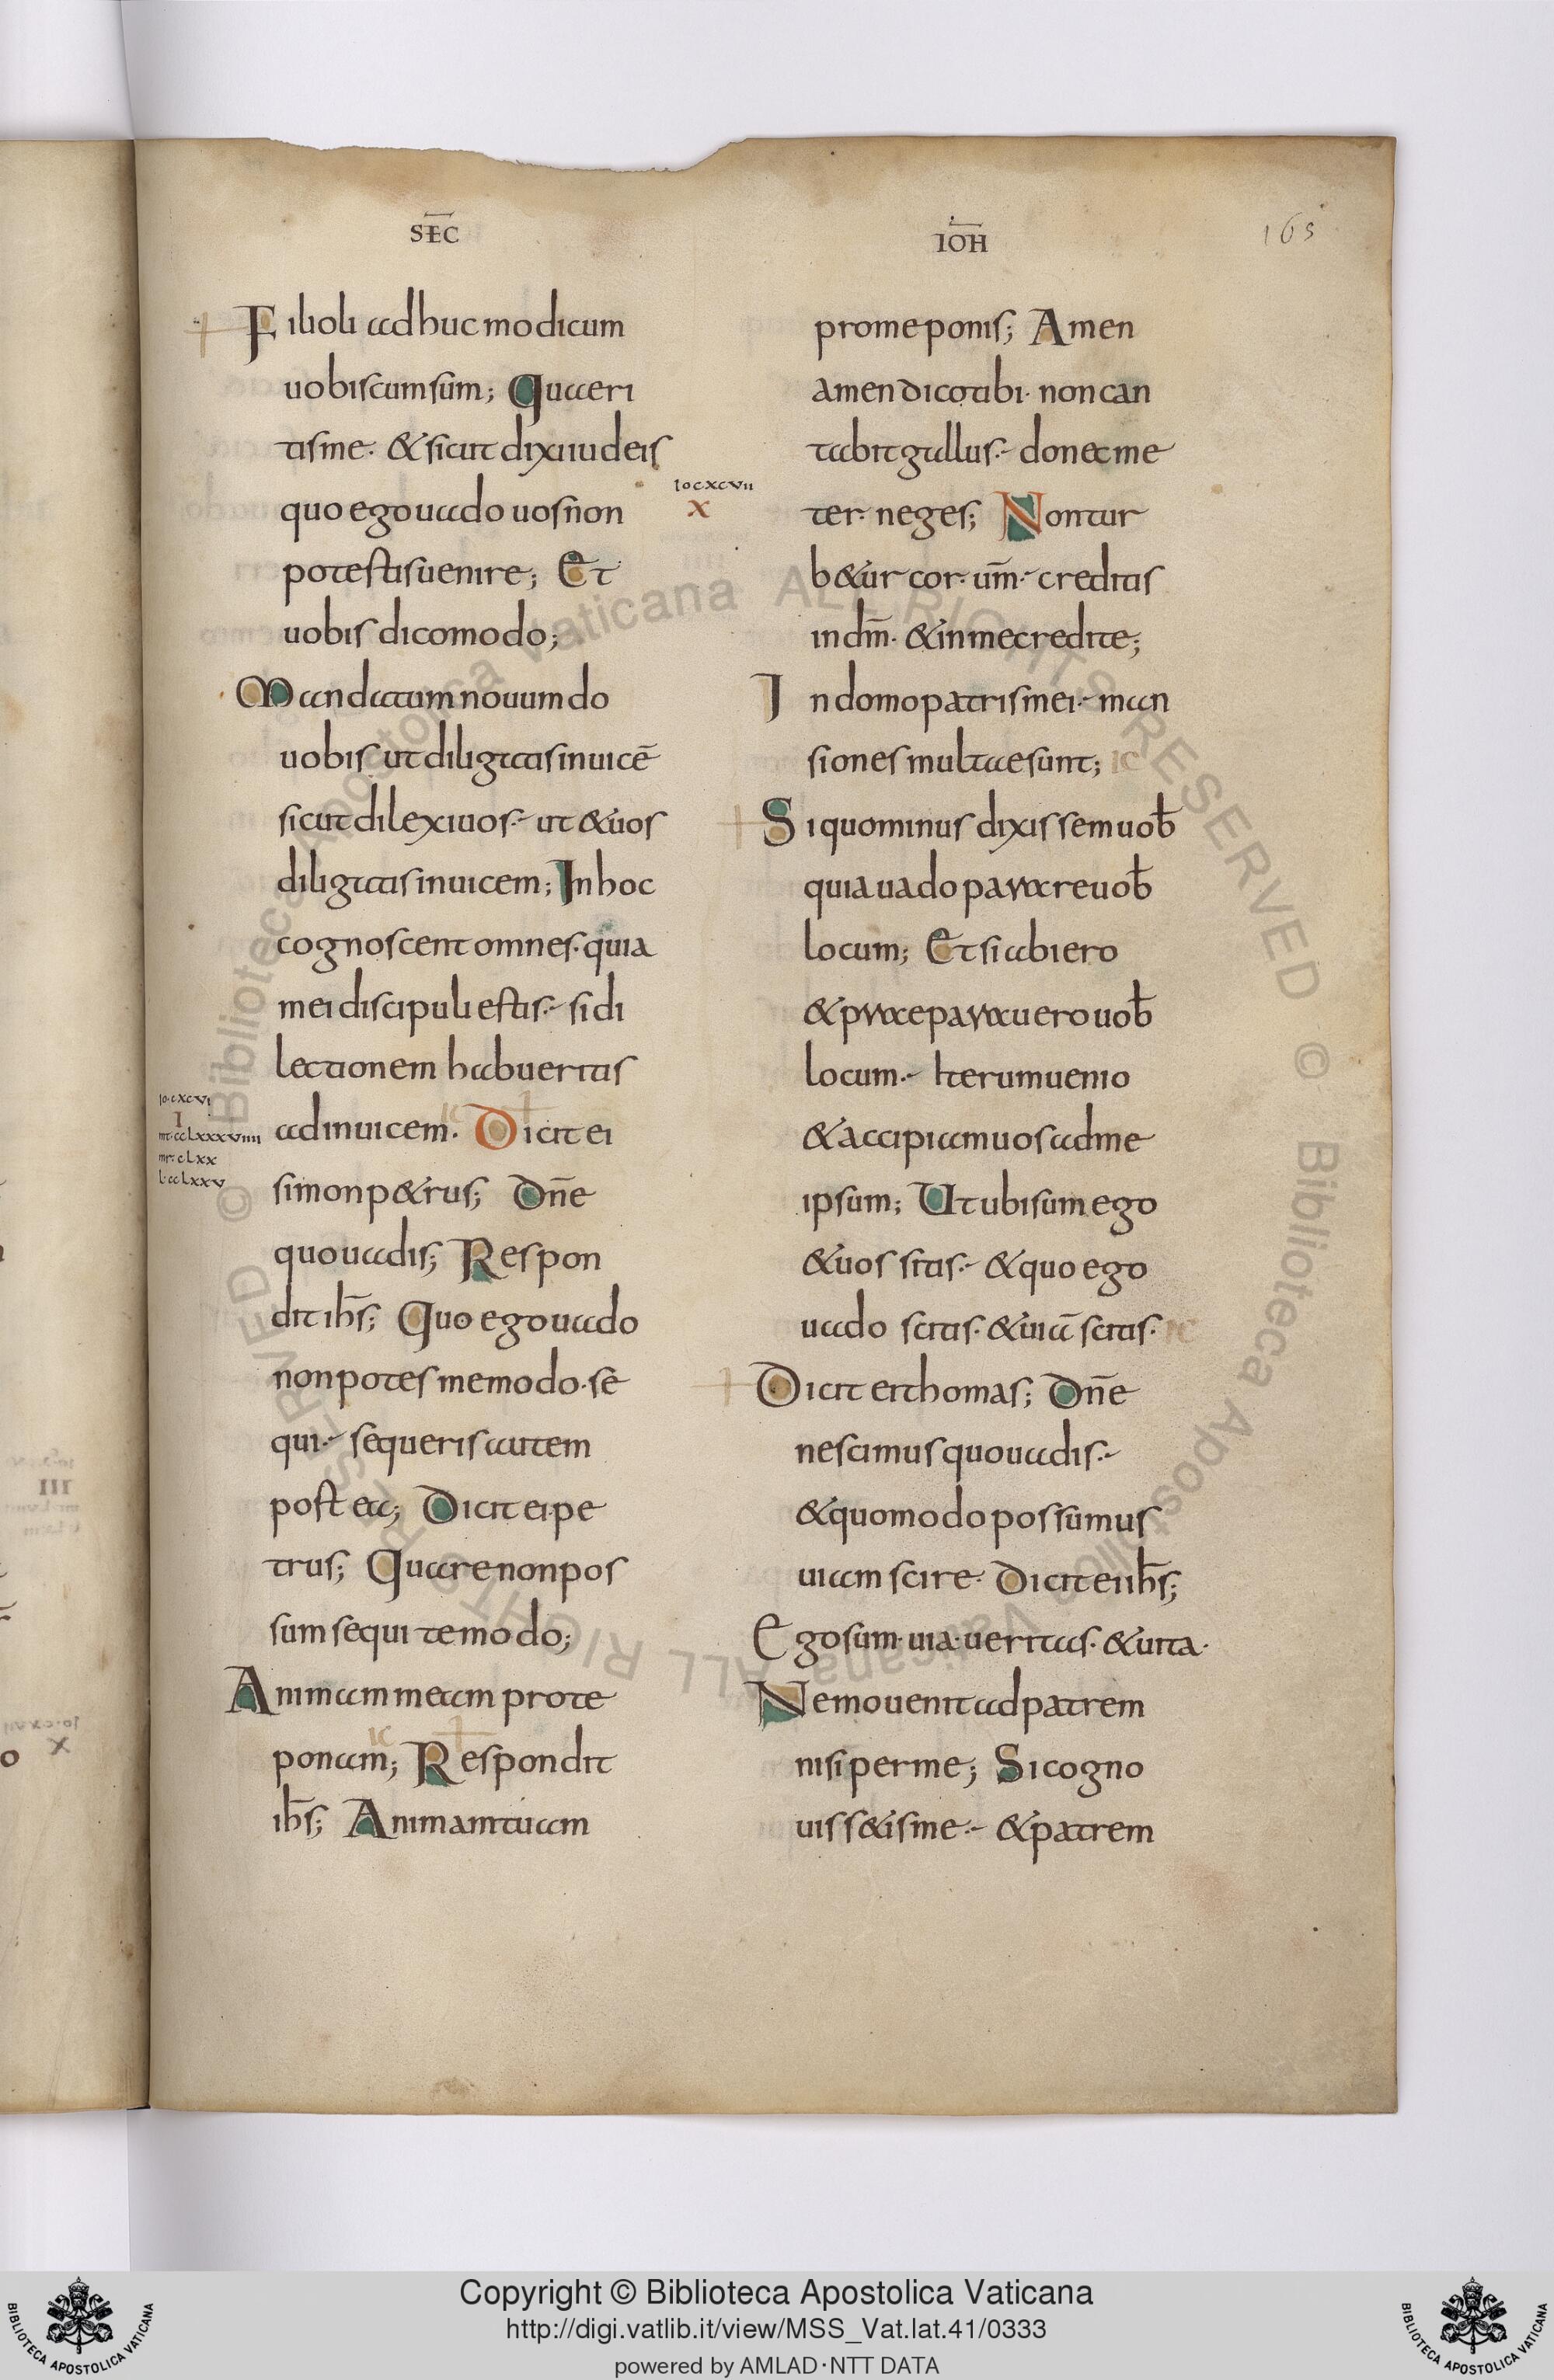 SEC̅
IOH̅
163
Filioli adhuc modicum
uobiscum sum; Quaeri
tis me· & sicut dixi iudeis
quo ego uado uos non
potestis uenire; Et
uobis dico modo;
Mandatum nouum do
uobis ut diligatis inuicē
sicut dilexi uos·- ut & uos
diligatis inuicem; In hoc
cognoscent omnes· quia
mei discipuli estis·- si di
lectionem habueritis
io·cxcvi
I
mt·cclxxxviiii
mr·clxx
l·cclxxv
ad inuicem· Dicit ei
simon p&rus; Dn̅e
quo uadis; Respon
dit ih̅s; Quo ego uado
non potes me modo· se
qui·- sequeris autem
postea; Dicit ei· pe
trus; Quare non pos
sum sequi te modo;
Animam meam pro te
ponam; Respondit
ih̅s; Animam tuam
pro me ponis; Amen
amen dico tibi· non can
tabit gallus·- donec me
io cxcvii
x
ter· neges; Non tur
b&ur cor· um̅·- creditis
in dm̅· & in me credite;
In domo patris mei·- man
siones multae sunt;
Si quominus dixissem uob̅
quia uado parare uob̅
locum; Et si abiero
& praeparauero uob̅
locum·- Iterum uenio
& accipiam uos ad me
ipsum; Ut ubi sum ego
& uos sitis·- & quo ego
uado scitis· & uiā scitis·
Dicit ei thomas; Dn̅e
nescimus quo uadis·-
& quomodo possumus
uiam scire· Dicit ei ih̅s;
Ego sum· uia· ueritas· & uita·
Nemo uenit ad patrem
nisi per me; Si cogno
uiss&is me·- & patrem
Copyright © Biblioteca Apostolica Vaticana
http://digi.vatlib.it/view/MSS_Vat.lat.41/0333
powered by AMLAD·NTT DATA
BIBLIOTECA APOSTOLICA VATICANA
BIBLIOTECA APOSTOLICA VATICANA